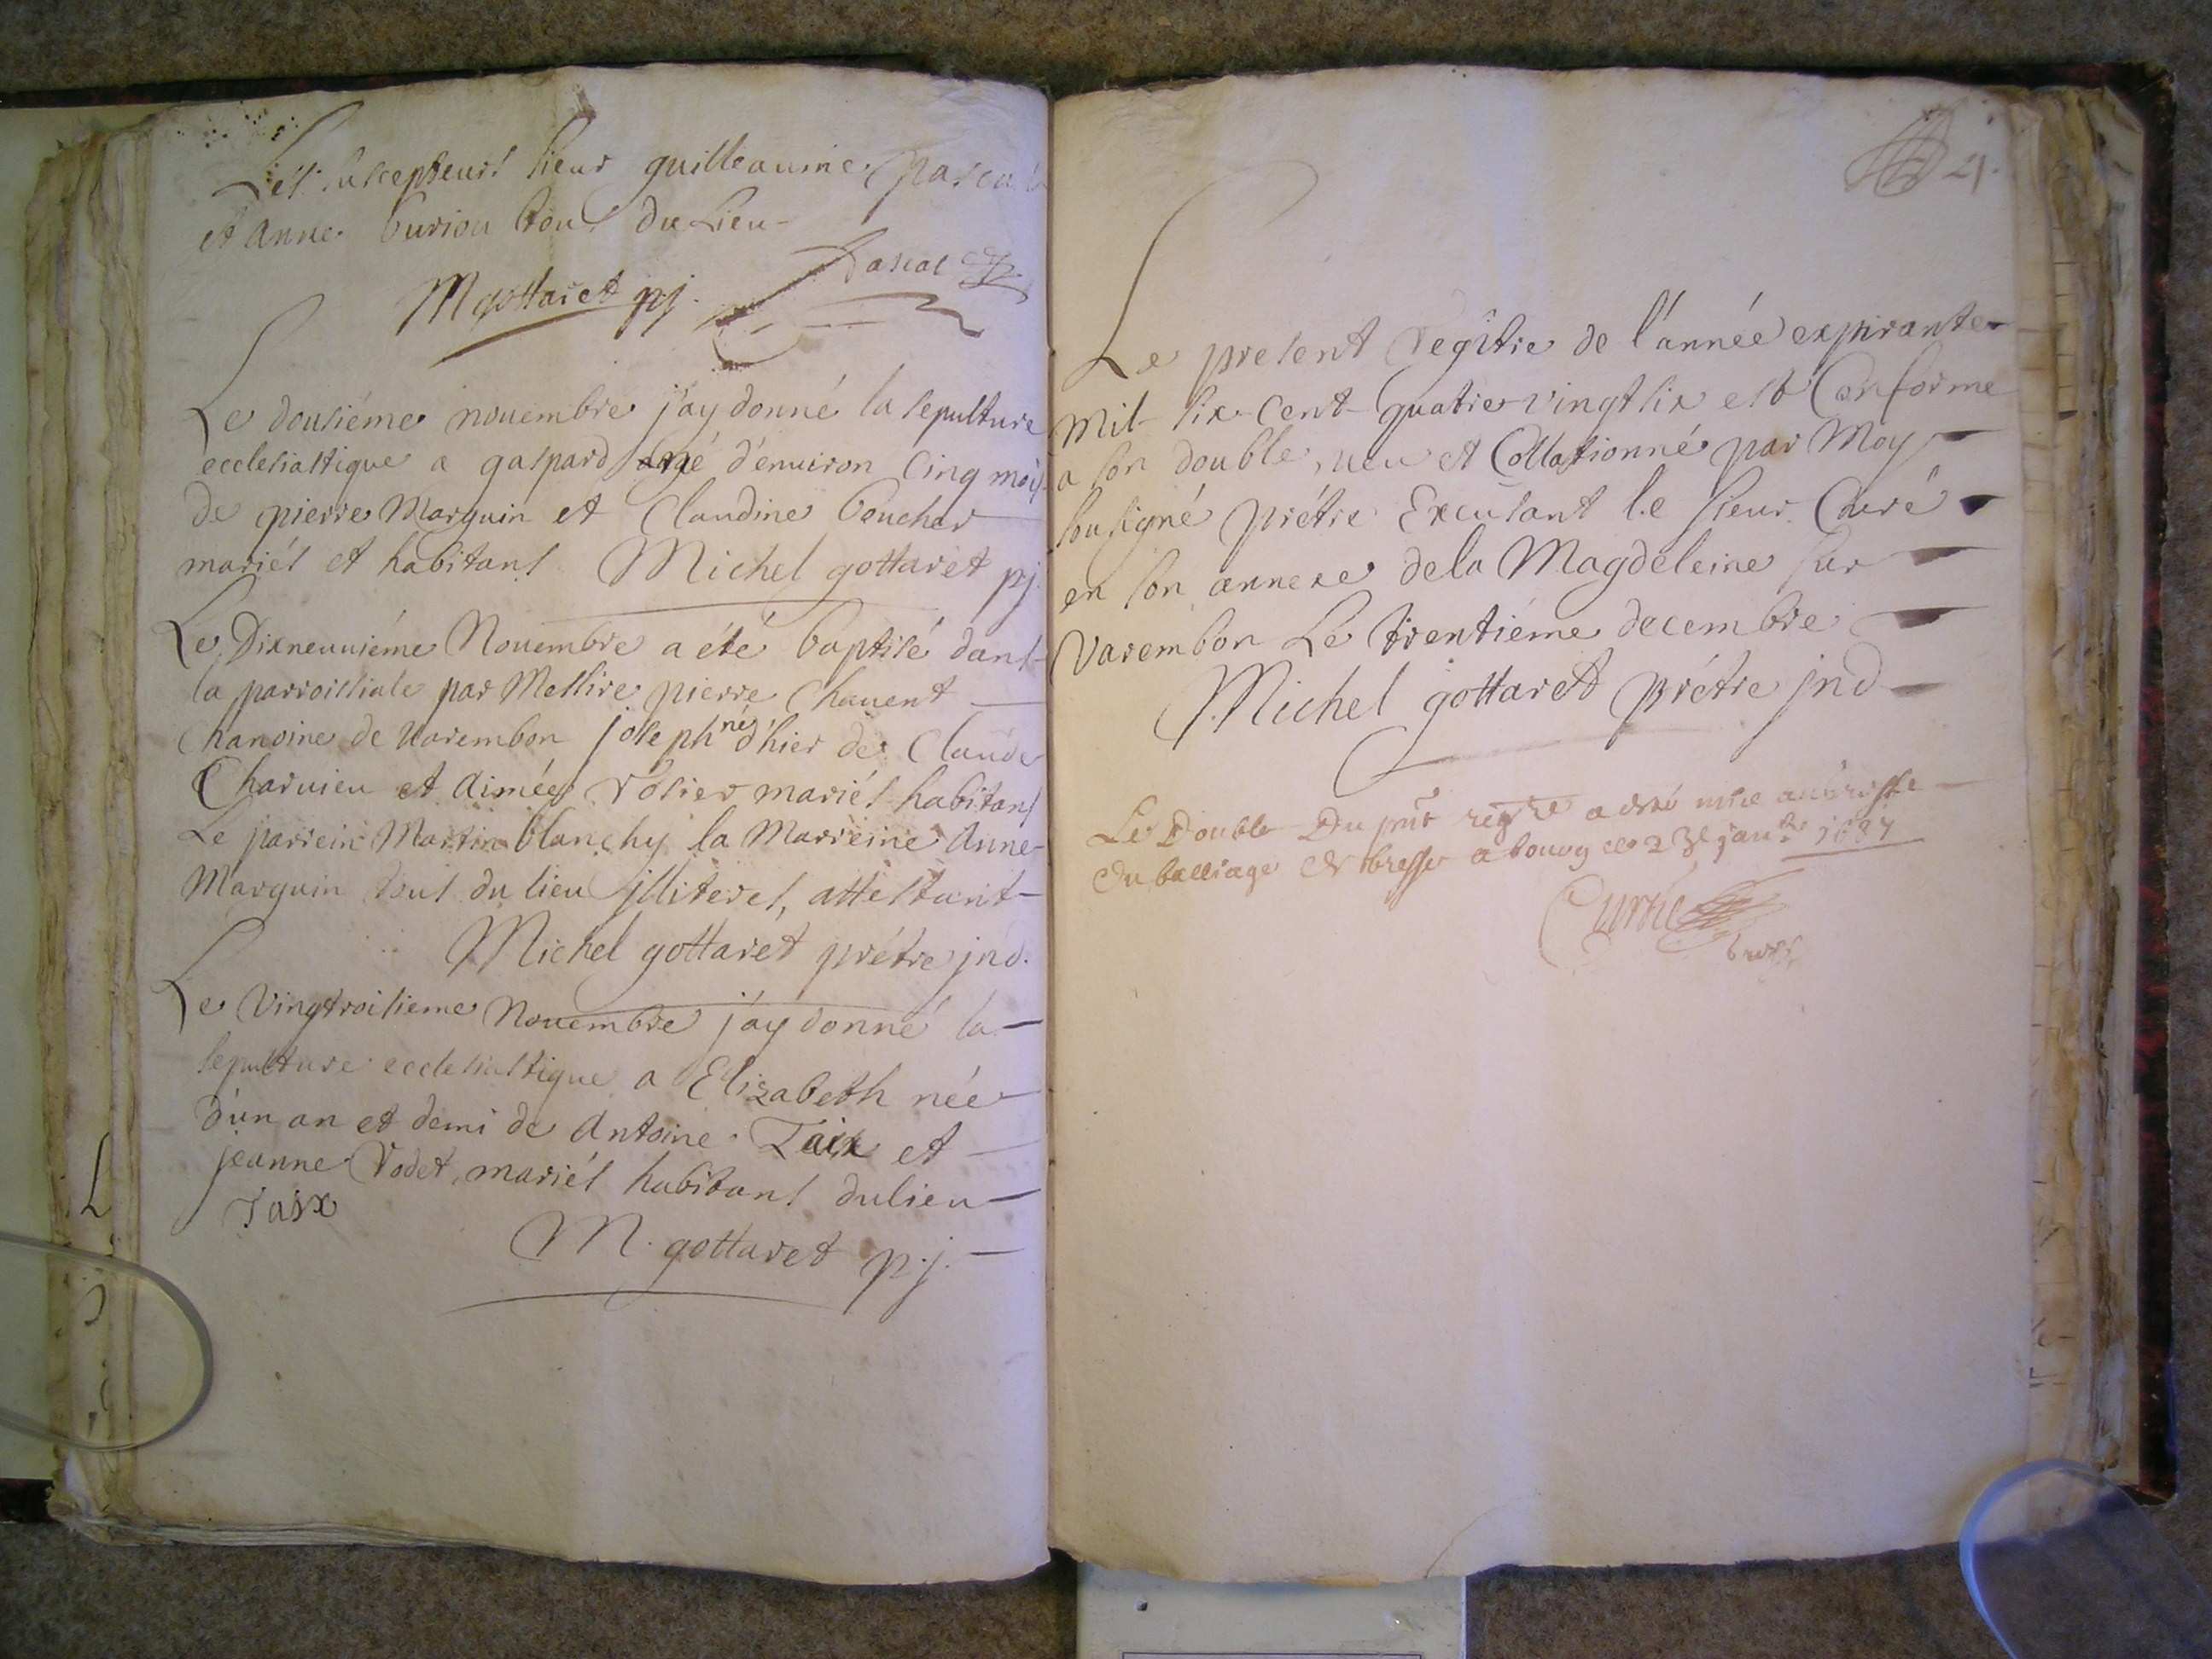 Les suscepteurs sieur guilleaume pascal
et anne buriou tous du Lieu
Mgottaret pj. Pascal
Le dousiéme nouembre j'ay donné la sepulture
ecclesiastique a gaspard agé d'enuiron Cinq mois
de pierre Marguin et Claudine bouchar
mariés et habitans Michel gottaret pj.
Le Dixneuuiéme Nouembre a été baptisé dans
la parroissiale par Messire pierre Chauent
Chanoine de uarembon joseph né d'hier de Claude
Charuieu et aimée rosier mariés habitans
Le parrein Martin blanchy la Marreine Anne
Marguin tous du lieu jlliterés, attestant
Michel gottaret prétre jnd.
Le Vingtroisieme Nouembre j'ay donné la
sepulture ecclesiastique a Elizabeth née
d'un an et demi de Antoine Taix et
jeanne Vodet, mariés habitans du lieu
Taix
M. gottaret p.j.
21.
Le present regître de l'année expirante
mil six Cent quatre vingt six est Conforme
a son double, ueu et Collationné par Moy
sousigné prétre Excusant le sieur Curé
en son annexe de la Magdeleine sur
Varembon Le trentiéme decembre
Michel gottaret prétre jnd
Le Double Du pnt regre a esté mise au greffe
du balliage de bresse a bourg ce 23e janer 1687